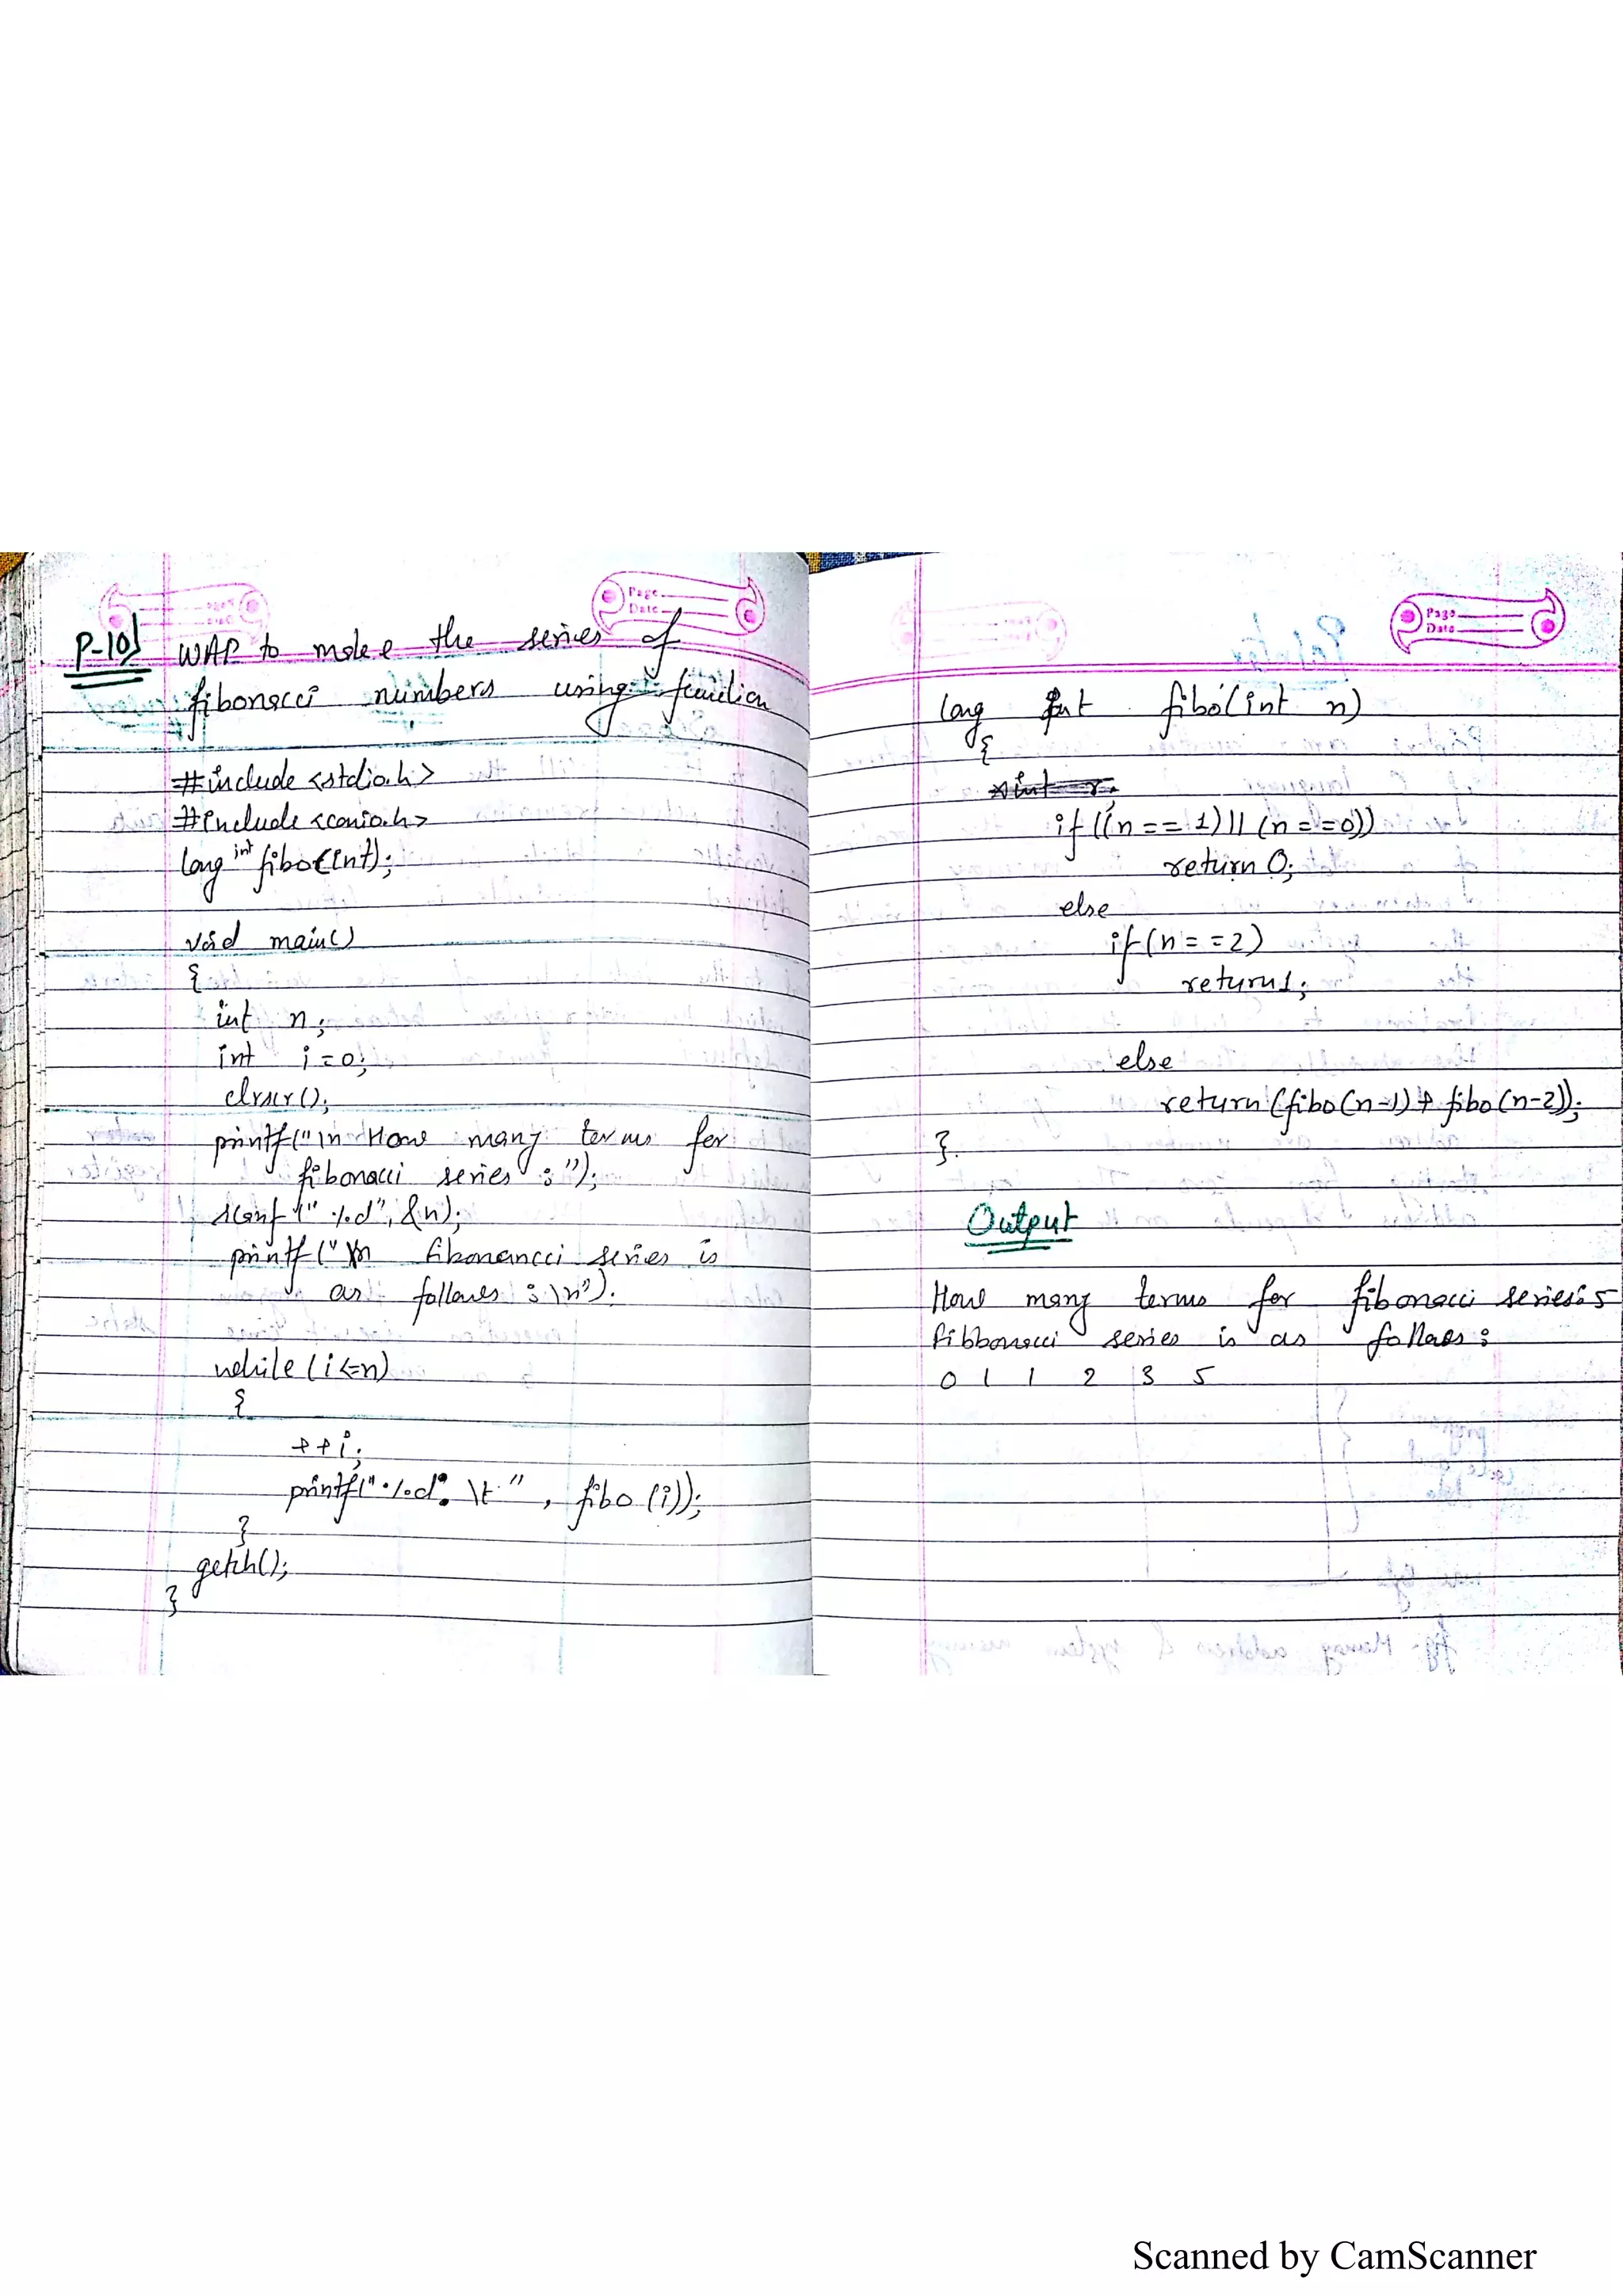 Page
Date
P-10) WAP to make the series of
fibonacci numbers using function
#include <stdio.h>
#include <conio.h>
long int fibo(int);
void main()
{
int n;
int i=0;
clrscr();
printf("\n How many terms for
fibonacci series : ");
scanf("%d", &n);
printf("\n fibonancci series is
as follows : \n").
while (i<=n)
{
++i;
printf("%d \t ", fibo (i));
}
getch();
}
Page
Date
long int fibo(int n)
{
if ((n == 1) || (n == 0))
return 0;
else
if (n = =2)
return1;
else
return (fibo(n-1) + fibo (n-2));
}.
Output
How many terms for fibonacci series: 5
fibbonacci series is as follows :
0 1 1 2 3 5
Scanned by CamScanner